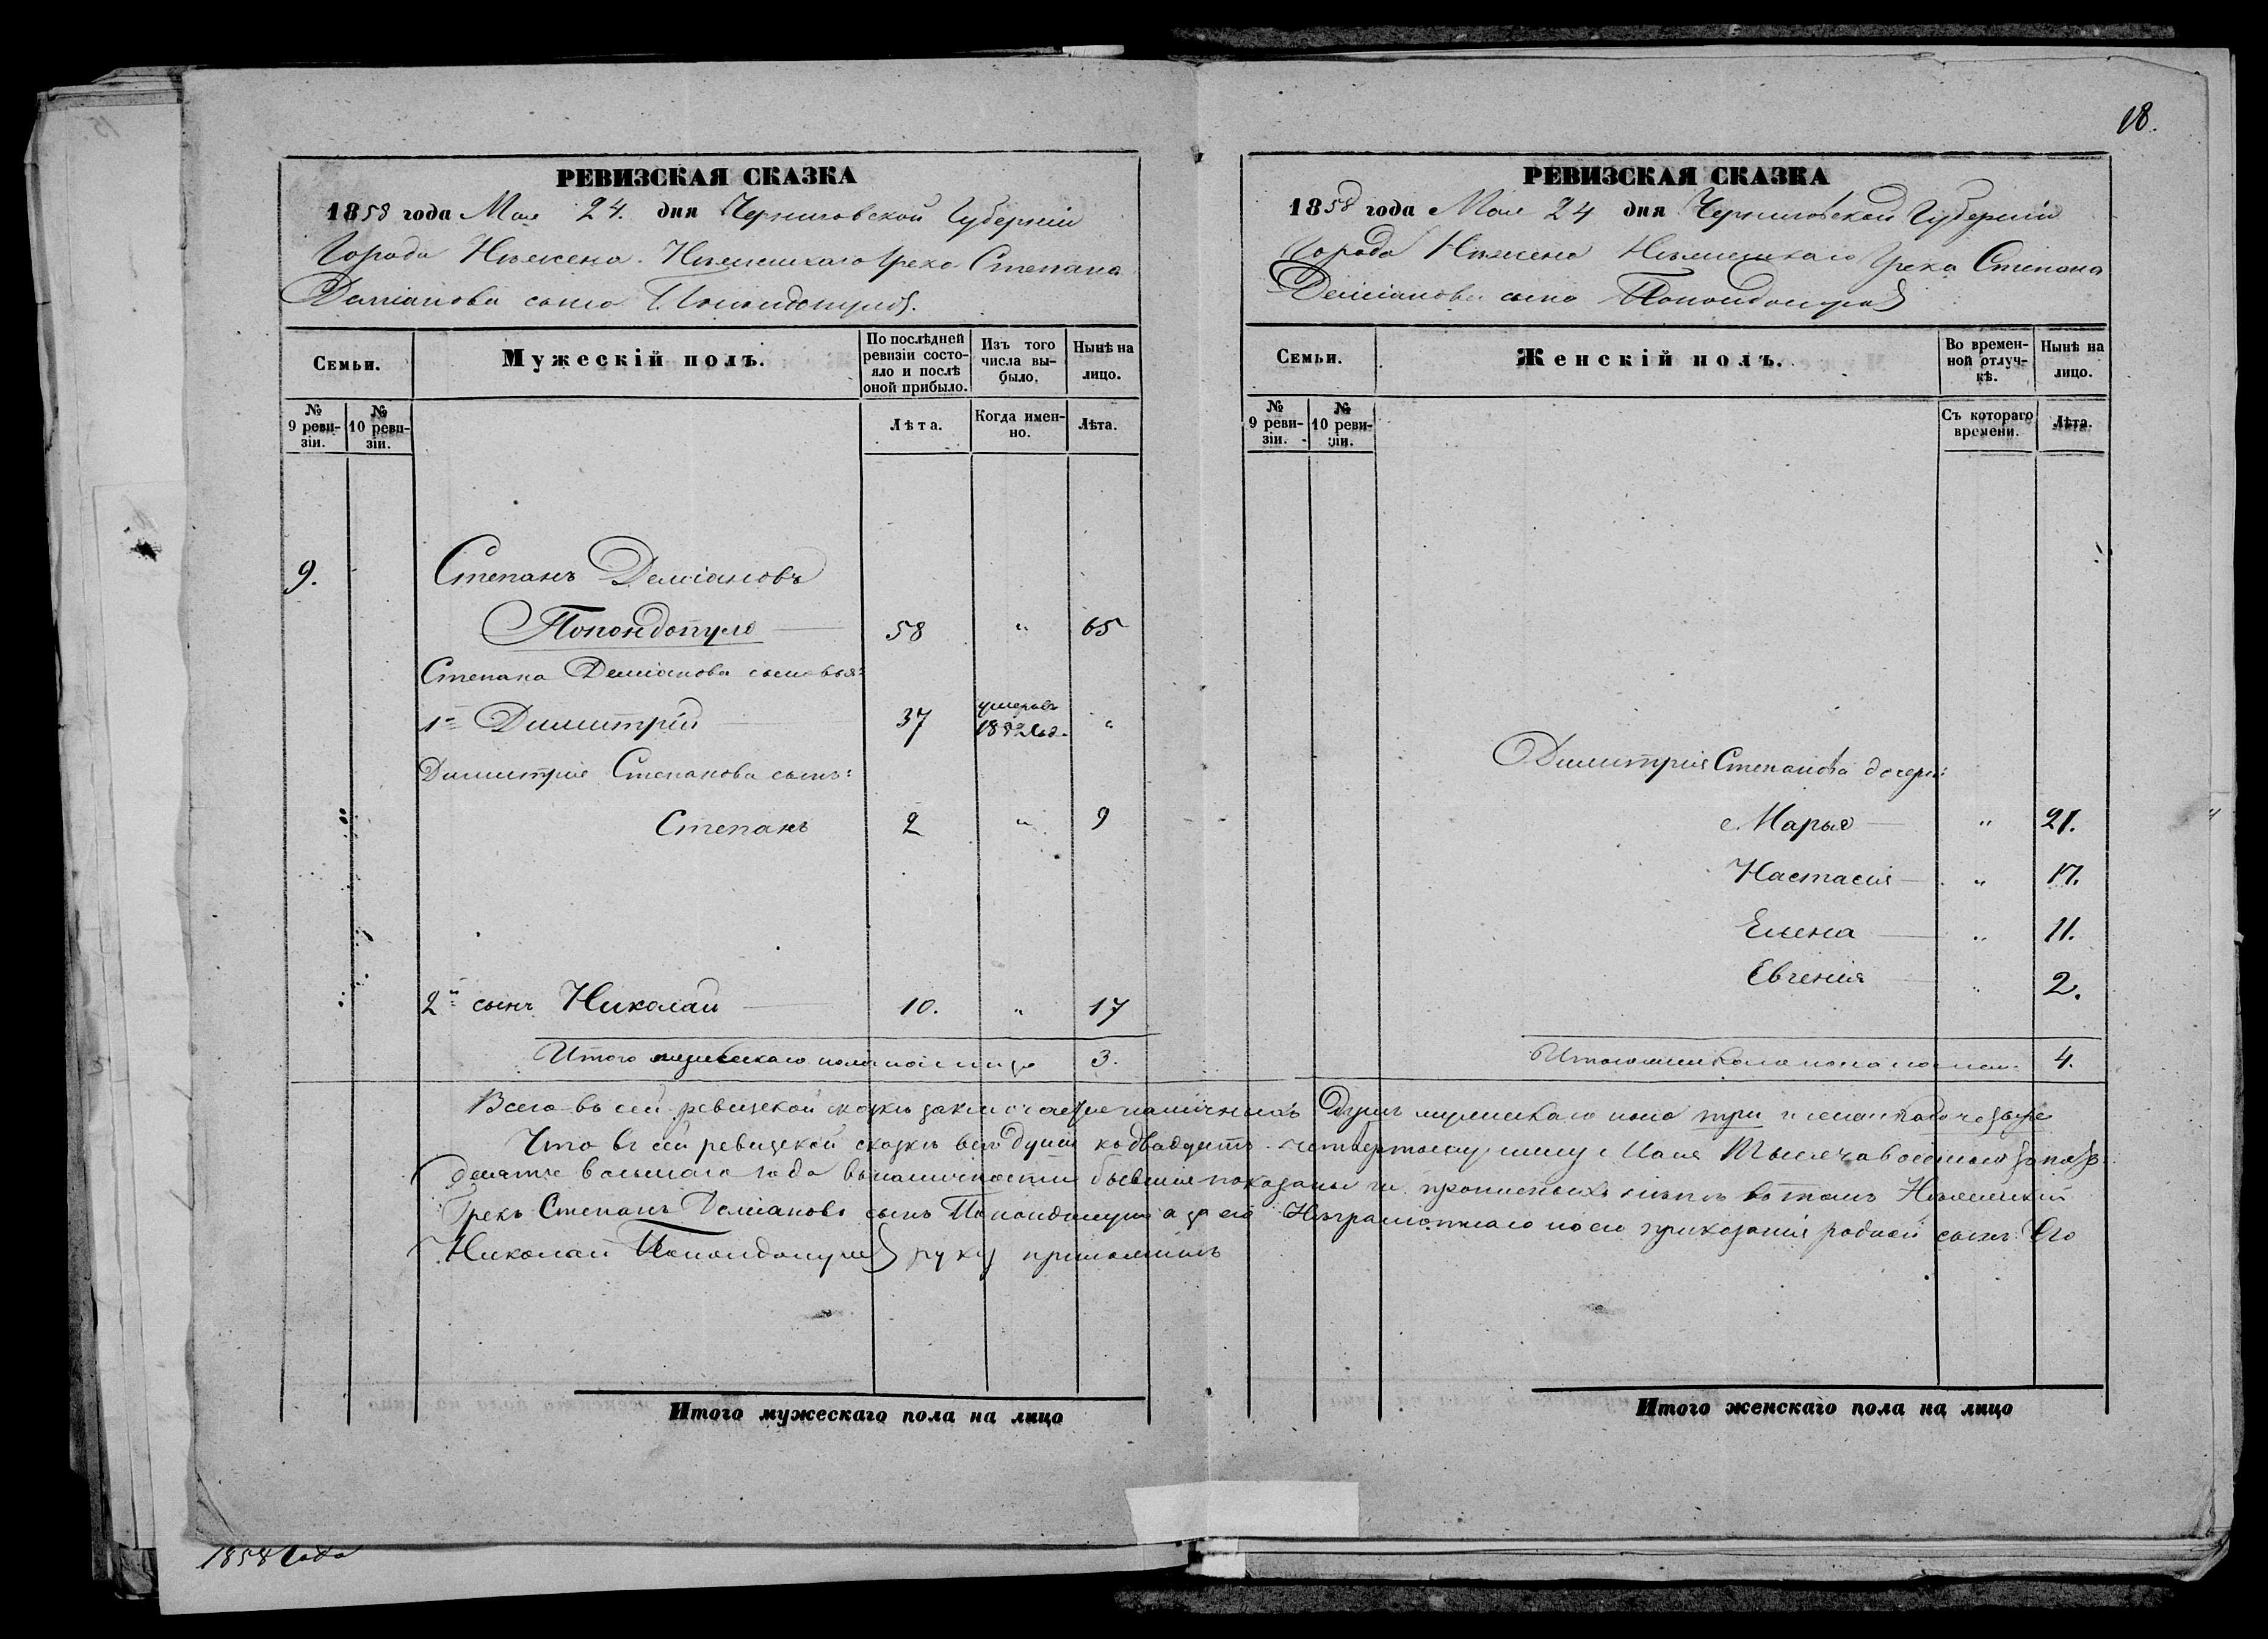 18.
РЕВИЗСКАЯ СКАЗКА
1858 года Мая 24. дня Черниговской Губерніи
Города Нѣжена Нѣжинскаго Грека Степана
Деміанова сына Попондопула.
Семьи.
Мужескій полъ.
По послѣдней ревизіи состояло и послѣ оной прибыло.
Изъ того числа выбыло.
Нынѣ на лицо.
№ 9 ревизіи.
№ 10 ревизіи.
Лѣта.
Когда именно.
Лѣта.
9. Степанъ Деміановъ
Попондопуло 58 " 65
Степана Деміанова сыновья:
1й Димитрій 37 умеръ въ "
Димитрія Степанова сынъ:
Степанъ 2 " 9
2й сынъ Николай 10. " 17
Итого мужескаго пола на лицо 3.
Итого мужескаго пола на лицо
РЕВИЗСКАЯ СКАЗКА
1858 года Мая 24 дня Черниговской Губерніи
Города Нѣжена Нѣжинскаго Грека Степана
Деміанова сына Попондопула
Семьи.
Женскій полъ.
Во временной отлучкѣ.
Нынѣ на лицо.
№ 9 ревизіи.
№ 10 ревизіи.
Съ котораго времени.
Лѣта.
Димитрія Степанова дочери:
Марья " 21.
Настасія " 17.
Елена " 11.
Евгенія " 2.
Итого женскаго пола на лицо 4.
Всего въ сей ревизской сказкѣ заключается наличныхъ Душъ мужескаго пола три и женскаго четыре
Что въ сей ревизской сказкѣ всѣ души къ двадцать четвертому числу Мая Тысяча восемьсотъ
восьмаго года въ наличности бывшія показаны и прописныхъ нѣтъ въ томъ Нѣжинскій
Грекъ Степанъ Деміановъ сынъ Попондопуло а за его Неграмотнаго по его приказанія родной сынъ Его
Николай Попондопуло руку приложилъ
Итого женскаго пола на лицо
1858 Года